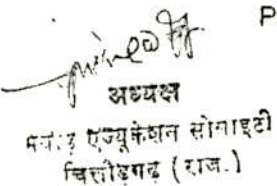 P
अध्यक्ष
मेवाड़ एज्यूकेशन सोसाइटी
चित्तौड़गढ़ (राज.)